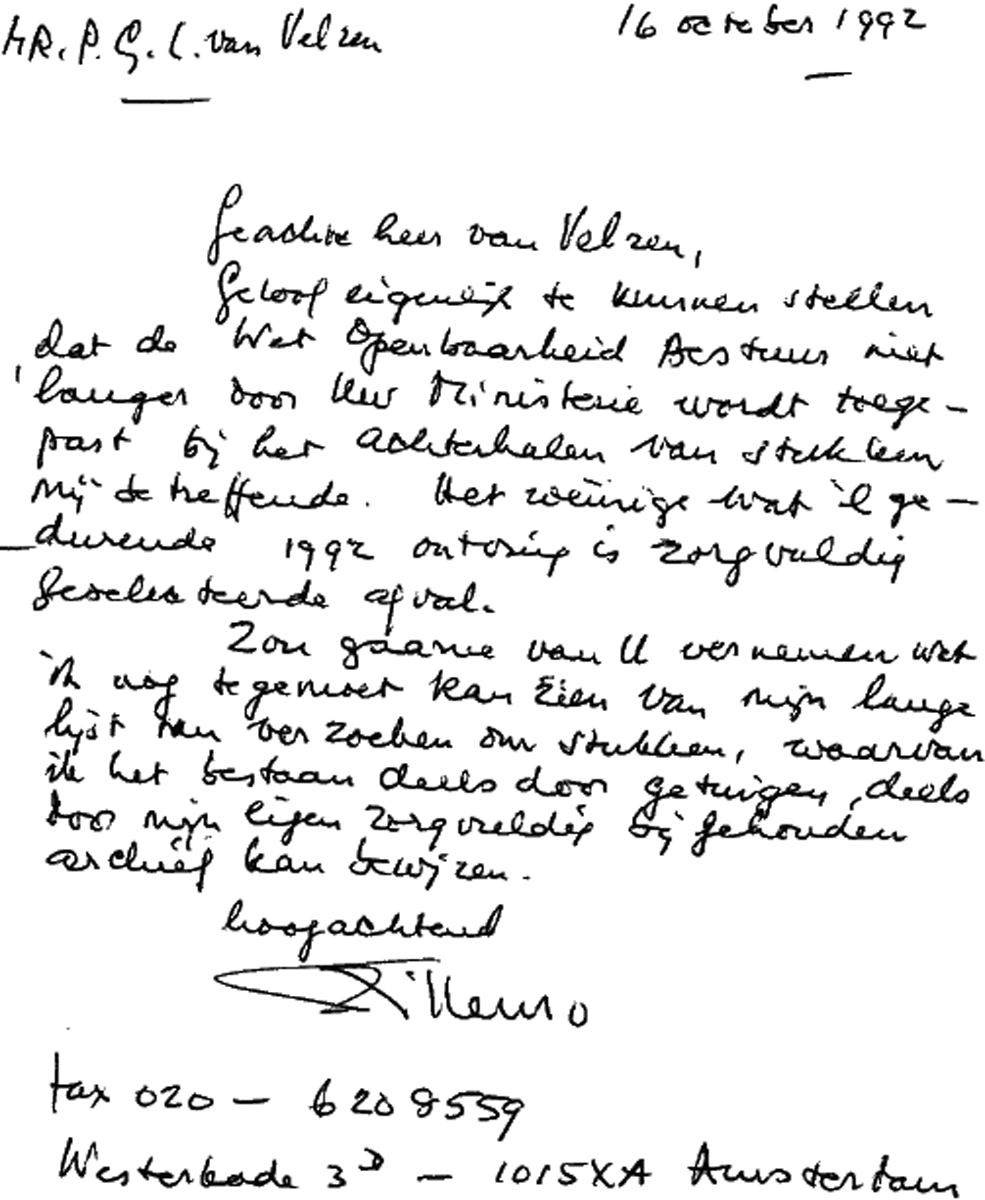 MR. P. G. C. van Velzen
16 october 1992
Geachte heer van Velzen,
Geloof eigenlijk te kunnen stellen
dat de Wet Openbaarheid Bestuur niet
langer door Uw Ministerie wordt toege-
past bij het achterhalen van stukken
mij betreffende. Het weinige wat 'k ge-
durende 1992 ontving is zorgvuldig
geselecteerde afval.
Zou gaarne van U vernemen wat
ik nog tegemoet kan zien van mijn lange
lijst van verzoeken om stukken, waarvan
ik het bestaan deels door getuigen, deels
door mijn eigen zorgvuldig bijgehouden
archief kan bewijzen.
hoogachtend
fax 020 - 6208559
Westerkade 3D - 1015XA Amsterdam